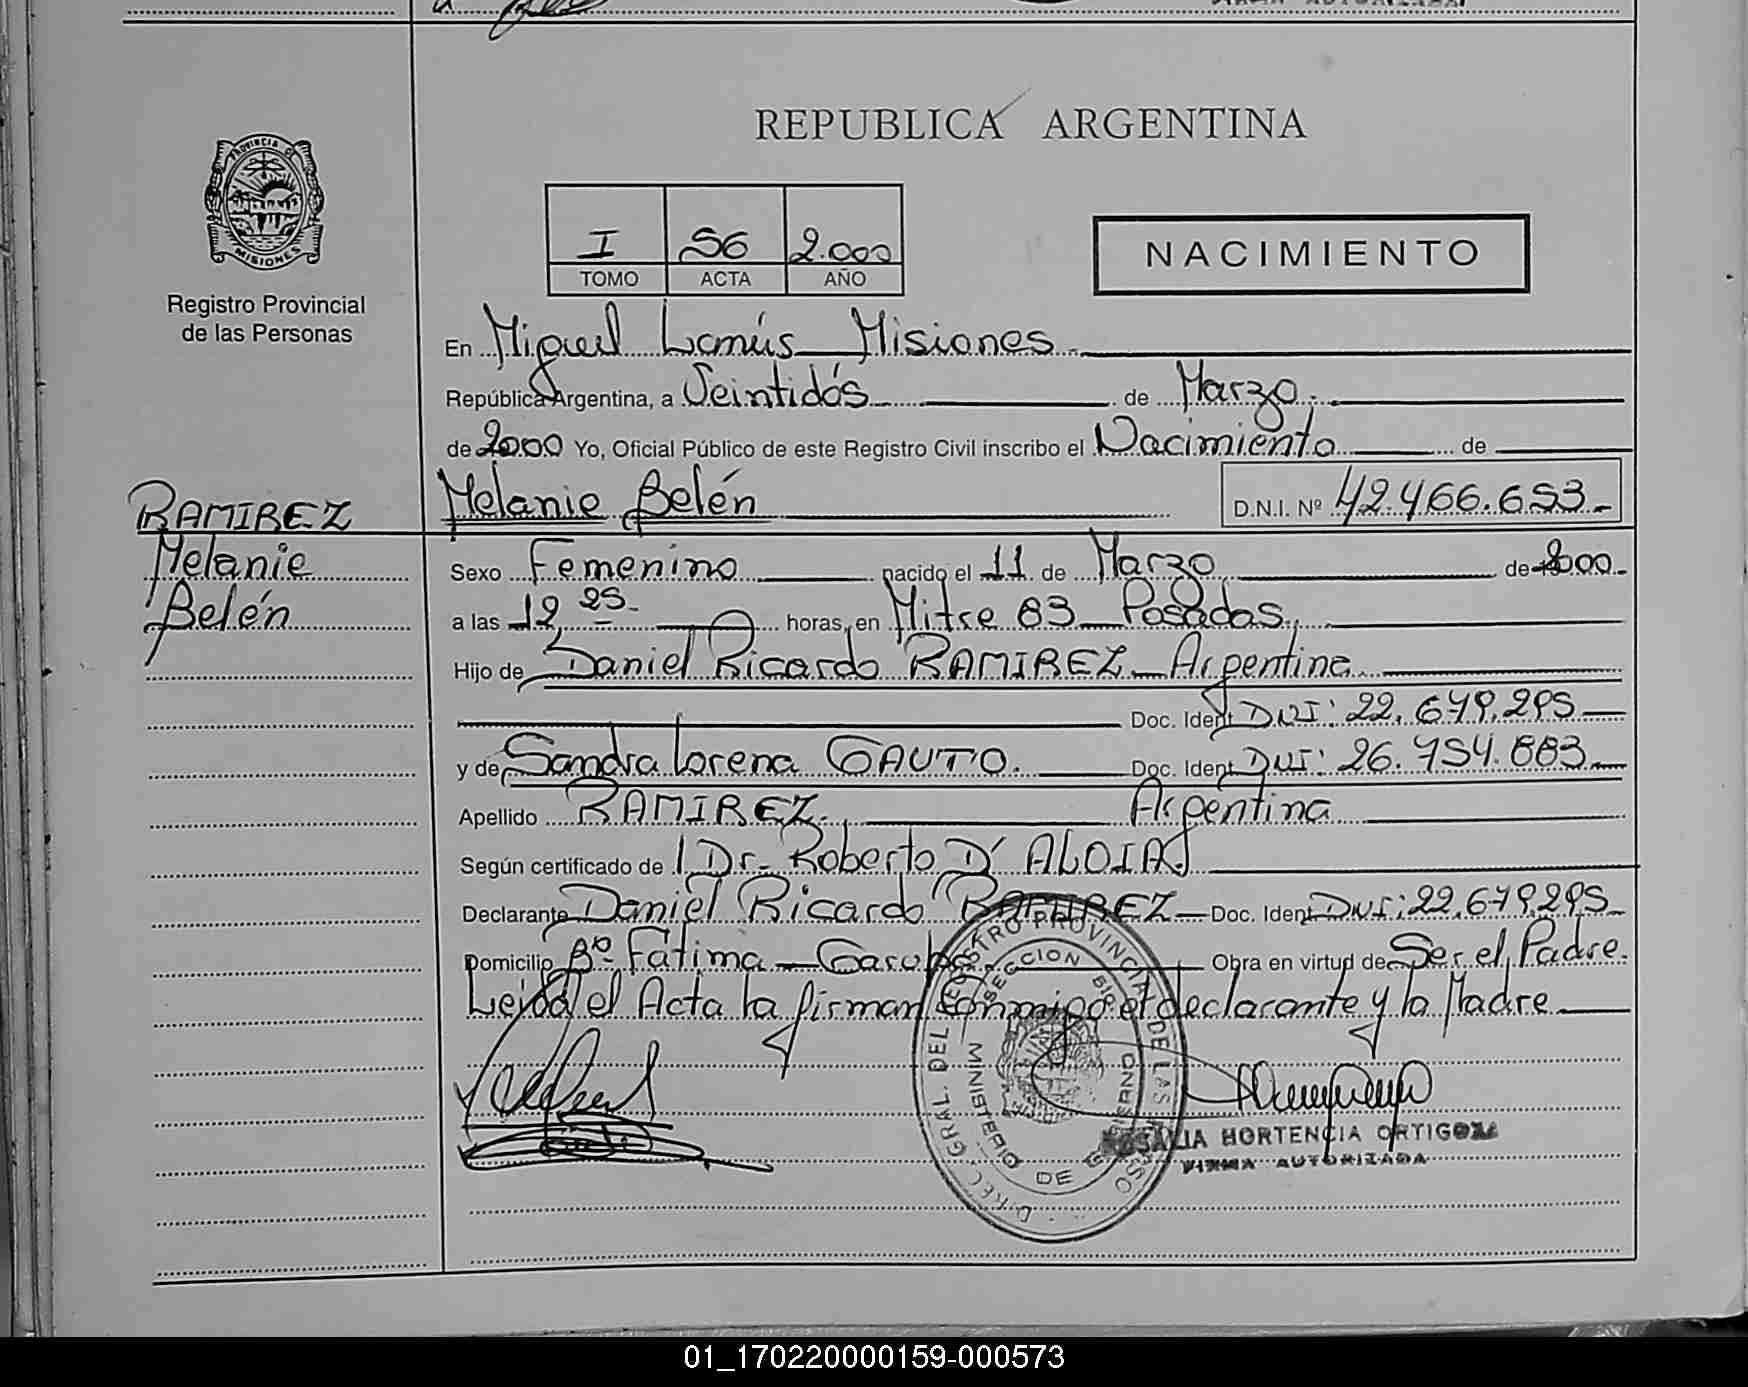 REPUBLICA ARGENTINA
PROVINCIA DE
MISIONES
Registro Provincial
de las Personas
I 56 2.000
TOMO ACTA AÑO
NACIMIENTO
En Miguel Lanús Misiones
República Argentina, a Veintidós de Marzo
de 2000 Yo, Oficial Público de este Registro Civil inscribo el Nacimiento de
Melanie Belén D.N.I. Nº 42.466.653.-
RAMIREZ
Melanie
Belén
Sexo Femenino nacido el 11 de Marzo de 2000.-
a las 12 25 horas, en Mitre 83 Posadas
Hijo de Daniel Ricardo RAMIREZ Argentino
Doc. Ident DNI: 22.679.295
y de Sandra Lorena GAUTO. Doc. Ident DNI: 26.754.883
Apellido RAMIREZ. Argentina
Según certificado de Dr. Roberto D'ALOIA
Declarante Daniel Ricardo RAMIREZ Doc. Ident DNI: 22.679.295
Domicilio Bº Fátima Garupá Obra en virtud de Ser el Padre.
Leída el Acta la firman conmigo el declarante y la Madre
DIREC. GRAL. DEL REGISTRO PROVINCIAL DE LAS
SECCION
MINISTERIO DE GOBIERNO
ROSALIA HORTENCIA ORTIGOZA
FIRMA AUTORIZADA
01_170220000159-000573